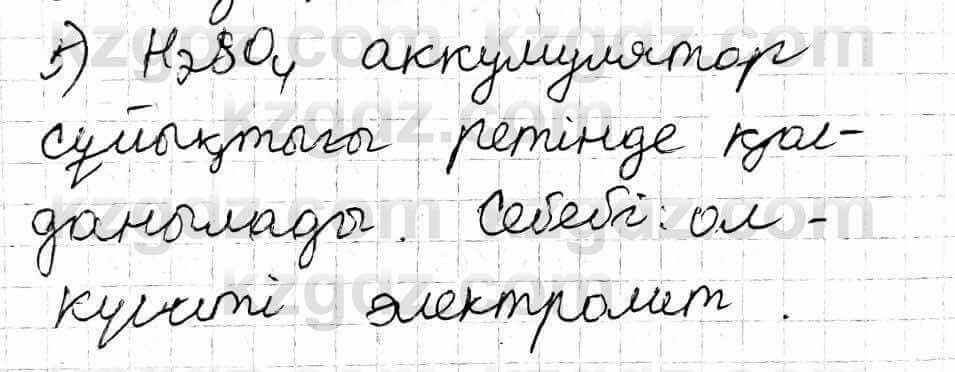 5) H₂SO₄ аккумулятор
сұйықтығы ретінде қол-
данылады. Себебі: ол -
күшті электролит.